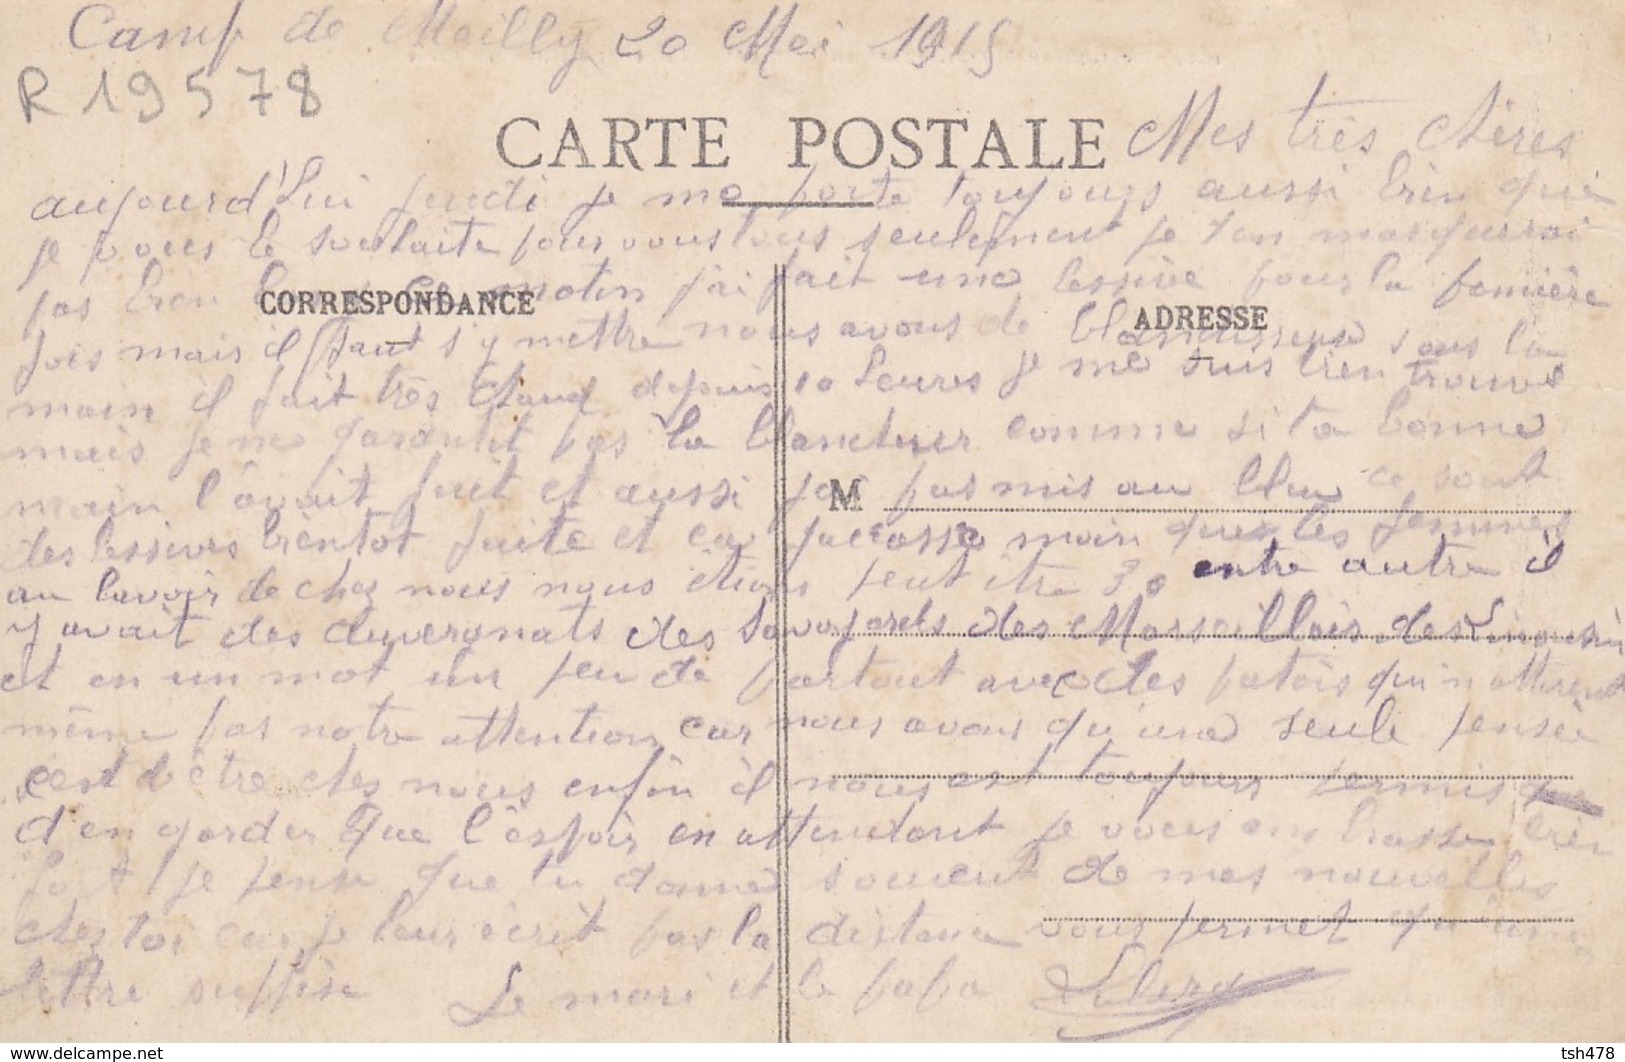 Camp de Mailly 20 Mai 1915
R 19578
CARTE POSTALE
Mes très chères
aujourd'hui jeudi je me porte toujours aussi bien que
je vous le souhaite pour vous tous seulement je t'en marquerai
pas bien long ce matin j'ai fait une lessive pour la première
CORRESPONDANCE
ADRESSE
fois mais il faut s'y mettre nous avons de blanchisseuse sous la
main il fait très chaud depuis 10 heures je me suis bien trouvé
mais je me garantit pas la blancheur comme si ta bonne
main l'avait fait et aussi j'ai pas mis au bleu ce sont
M
des lessives bientot faite et ca jacasse moin que les femmes
au lavoir de chez nous nous étions peut être 30 entre autre il
y avait des auvergnats des Savoyards des Marseillais des Limousin
et en un mot un peu de partout avec des patois qui n'attirent
même pas notre attention car nous avons qu'une seule pensée
c'est d'être chez nous enfin il nous est toujours permis
d'en garder que l'éspoir en attendant je vous embrasse bien
fort je pense que tu donne souvent de mes nouvelles
chez toi car je leur écrit pas la distance vous permet qu'une
lettre suffise Le mari et le papa
www.delcampe.net
tsh478